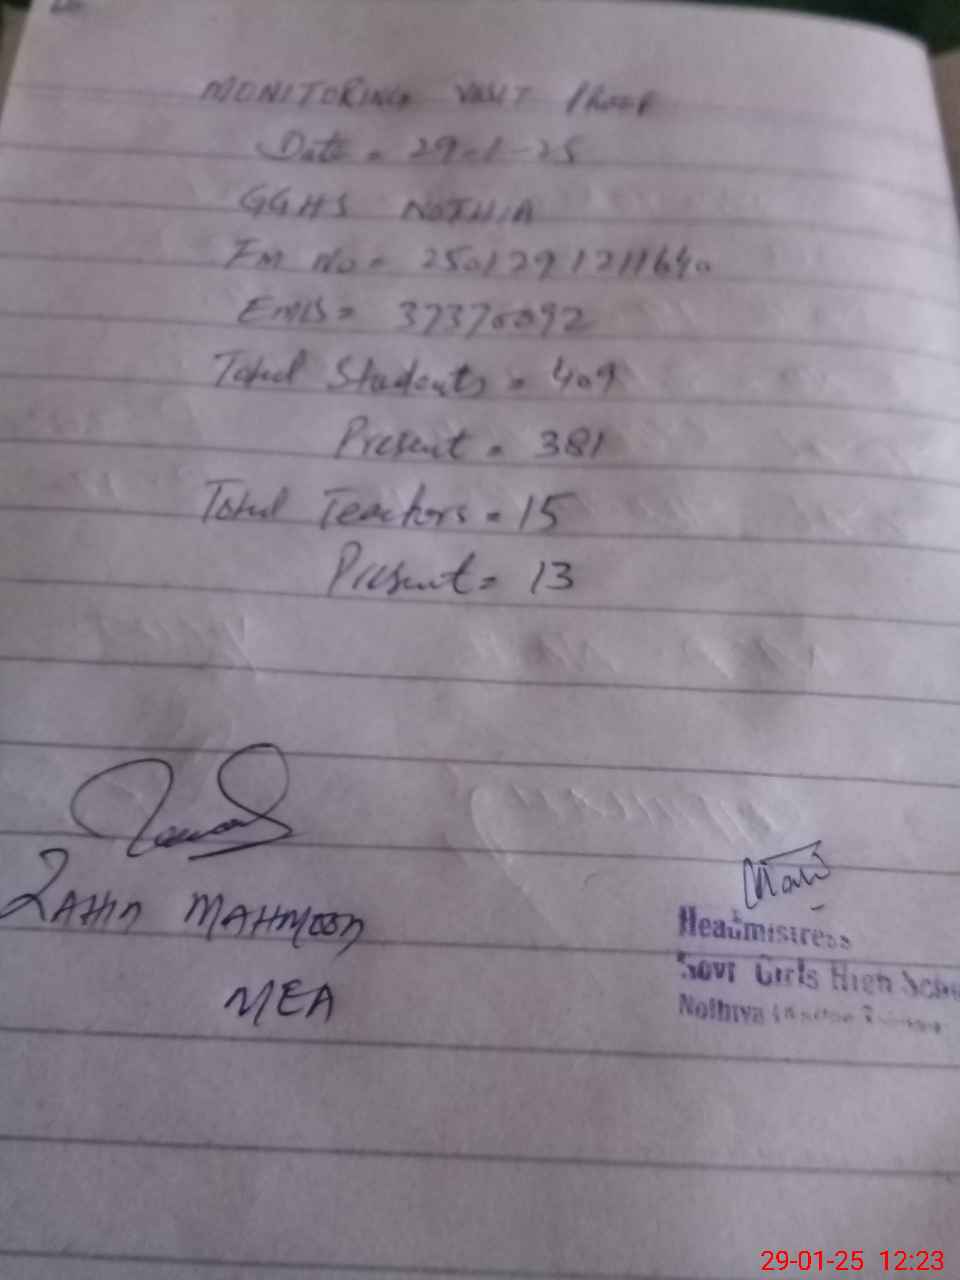 MONITORING VISIT Proof
Date = 29-1-25
GGHS NOTHIA
Fm No = 2501291211640
EMIS = 37370092
Total Students = 409
Present = 381
Total Teachers = 15
Present = 13
ZAHID MAHMOOD
MEA
Headmistress
Govt Girls High
Nothiya
29-01-25 12:23